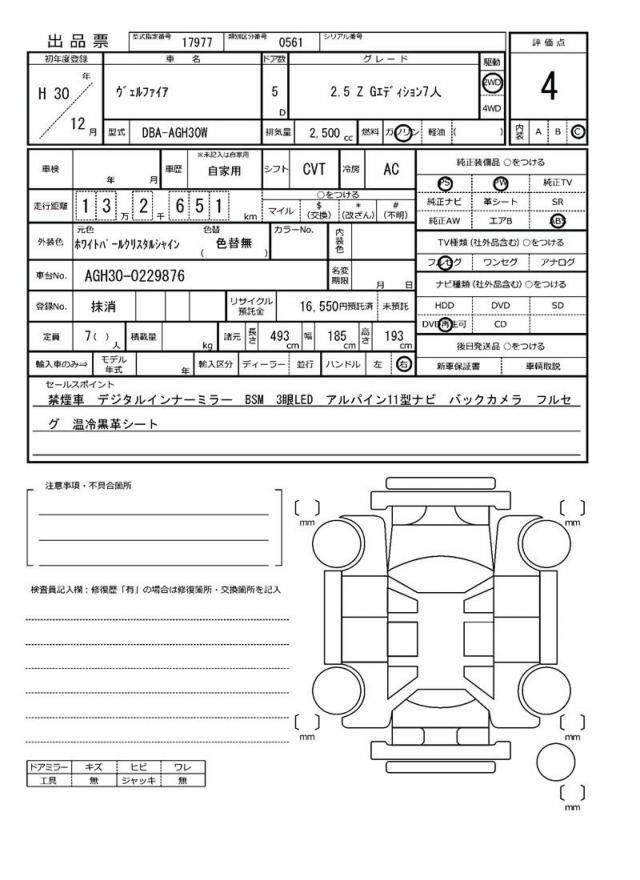 出品票 型式指定番号 17977 類別区分番号 0561 シリアル番号
初年度登録 車 名 ドア数 グレード 駆動 評価点
H 30 年 12 月 ヴェルファイア 5 D 2.5 Z Gエディション7人 2WD 4WD 4
型式 DBA-AGH30W 排気量 2,500 cc 燃料 ガソリン 軽油 ( ) 内装 A B C
車検 年 月 車歴 ※未記入は自家用 自家用 シフト CVT 冷房 AC
走行距離 1 3 万 2 千 6 5 1 km ○をつける マイル $ (交換) * (改ざん) # (不明)
外装色 元色 ホワイトパールクリスタルシャイン 色替 ( 色替無 ) カラーNo. 内装色
車台No. AGH30-0229876 名変期限 月 日
登録No. 抹消 リサイクル預託金 16,550円預託済 未預託
定員 7( ) 人 積載量 kg 諸元 長さ 493 cm 幅 185 cm 高さ 193 cm
輸入車のみ⇒ モデル年式 年 輸入区分 ディーラー 並行 ハンドル 左 右
純正装備品 ○をつける
PS PW 純正TV
純正ナビ 革シート SR
純正AW エアB ABS
TV種類 (社外品含む) ○をつける
フルセグ ワンセグ アナログ
ナビ種類 (社外品含む) ○をつける
HDD DVD SD
DVD再生可 CD
後日発送品 ○をつける
新車保証書 車輌取説
セールスポイント
禁煙車 デジタルインナーミラー BSM 3眼LED アルパイン11型ナビ バックカメラ フルセ
グ 温冷黒革シート
注意事項・不具合箇所
検査員記入欄：修復歴「有」の場合は修復箇所・交換箇所を記入
[ ] mm [ ] mm
[ ] mm [ ] mm
[ ] mm
ドアミラー キズ ヒビ ワレ
工具 無 ジャッキ 無